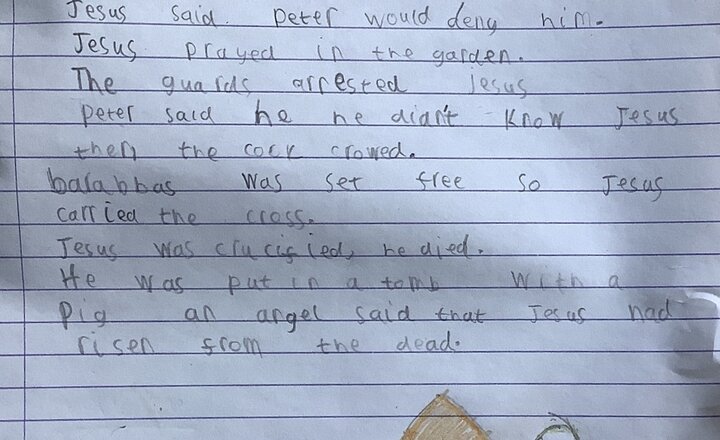 Jesus said. Peter would deny him.
Jesus prayed in the garden.
The guards arrested Jesus
Peter said he he didn't know Jesus
then the cock crowed.
balabbas was set free so Jesus
carried the cross.
Jesus was crucified, he died.
He was put in a tomb with a
Pig an angel said that Jesus had
risen from the dead.